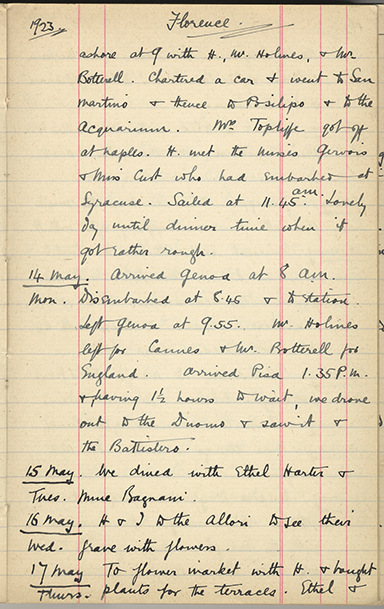 1923. Florence.
ashore at 9 with H., Mr. Holmes, & Mr.
Botterell. Chartered a car & went to San
Martino & thence to Posilipo & to the
Acquarium. Mrs Topliffe got off
at Naples. H. met the Misses Gervois
& Miss Cust who had embarked at
Syracuse. Sailed at 11.45 a.m. Lovely
day until dinner time when it
got rather rough.
14 May. Arrived Genoa at 8 a.m.
Mon. Disembarked at 8.45 & to station.
Left Genoa at 9.55. Mr. Holmes
left for Cannes & Mr. Botterell for
England. Arrived Pisa 1.35 P.m.
& having 1½ hours to wait, we drove
out to the Duomo & saw it &
the Battistero.
15 May. We dined with Ethel Harter &
Tues. Mme Bagnani.
16 May. H & I to the Allori to see their
Wed. grave with flowers.
17 May To flower market with H. & bought
Thurs. plants for the terraces. Ethel &